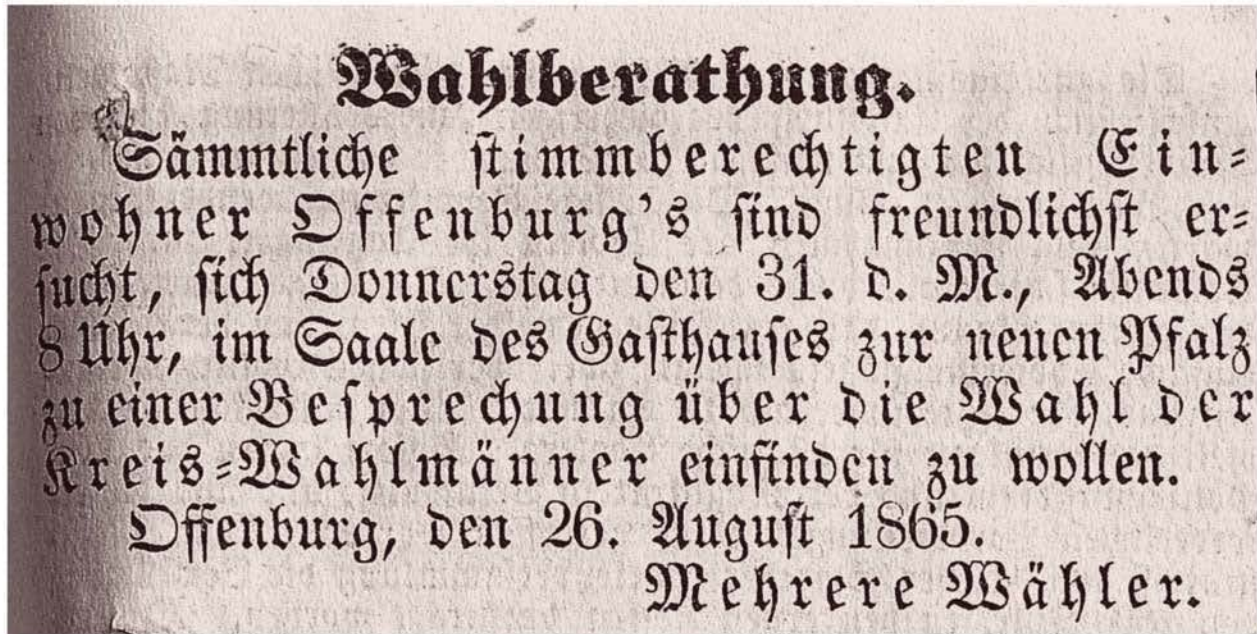 Wahlberathung.
Sämmtliche stimmberechtigten Ein-
wohner Offenburg's sind freundlichst er-
sucht, sich Donnerstag den 31. d. M., Abends
8 Uhr, im Saale des Gasthauses zur neuen Pfalz
zu einer Besprechung über die Wahl der
Kreis-Wahlmänner einfinden zu wollen.
Offenburg, den 26. August 1865.
Mehrere Wähler.